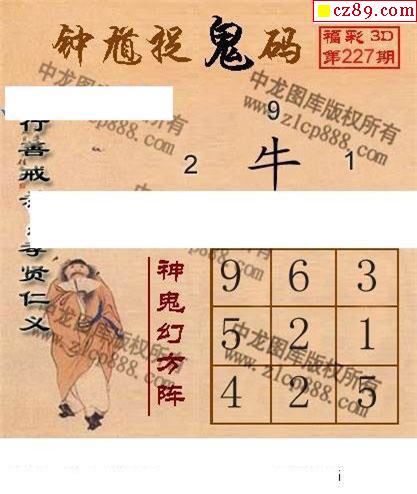 cz89.com
钟馗捉鬼码
福彩3D
第227期
9
2
牛
1
行善戒
孝贤仁义
神鬼幻方阵
9 6 3
5 2 1
4 2 5
中龙图库版权所有
www.zlcp888.com
中龙图库版权所有
www.zlcp888.com
i